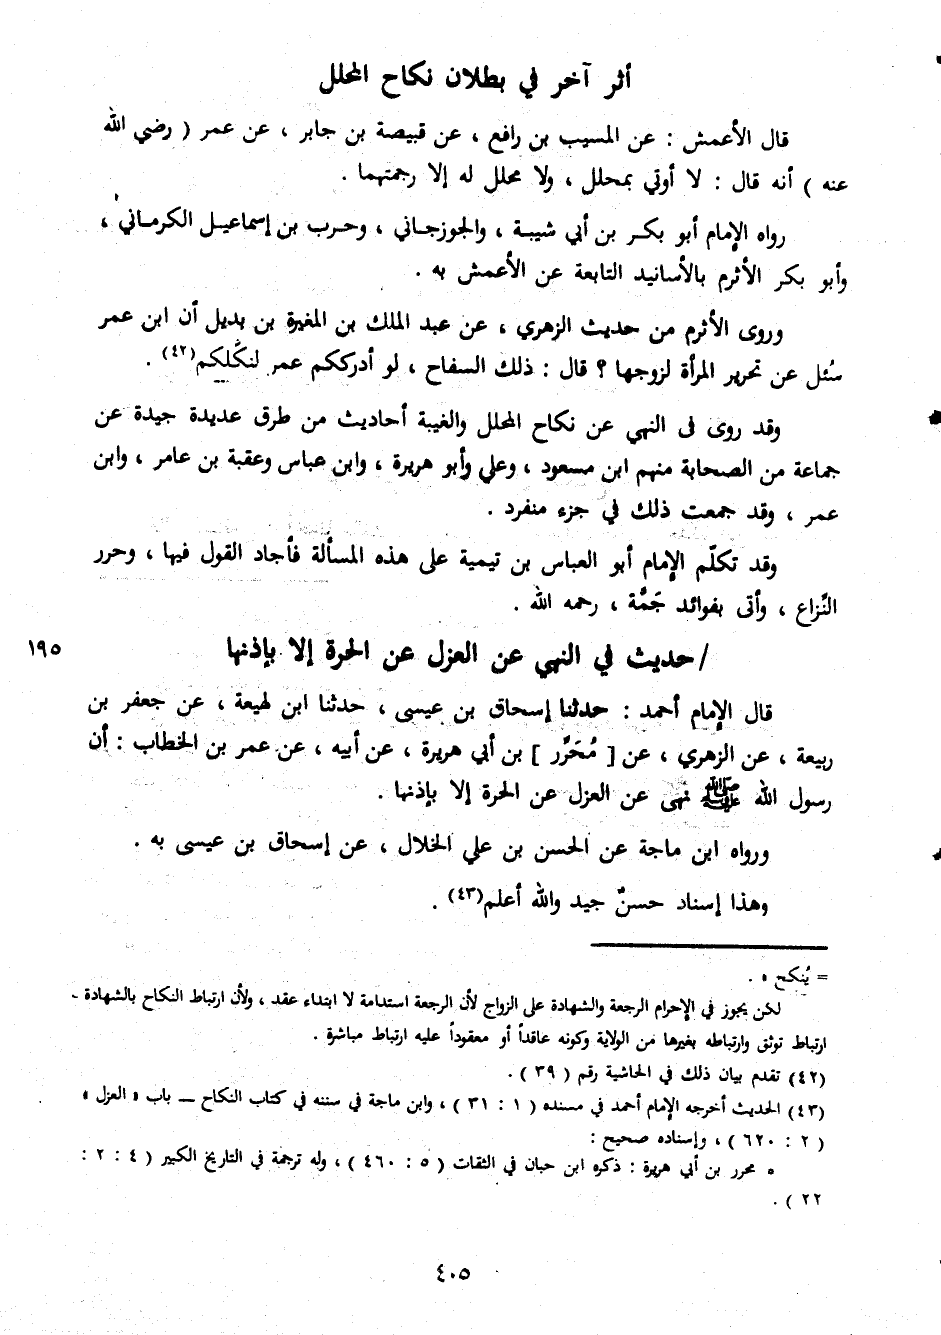 أثر آخر في بطلان نكاح المحلل
قال الأعمش : عن المسيب بن رافع ، عن قبيصة بن جابر ، عن عمر ( رضي الله
عنه ) أنه قال : لا أوتي بمحلل ، ولا محلل له إلا رجمتهما .
رواه الإمام أبو بكر بن أبي شيبة ، والجوزجاني ، وحرب بن إسماعيل الكرماني ،
وأبو بكر الأثرم بالأسانيد التابعة عن الأعمش به .
وروى الأثرم من حديث الزهري ، عن عبد الملك بن المغيرة بن بديل أن ابن عمر
سُئل عن تحرير المرأة لزوجها ؟ قال : ذلك السفاح ، لو أدرككم عمر لنكَّلكم(٤٢) .
وقد روى فى النهي عن نكاح المحلل والغيبة أحاديث من طرق عديدة جيدة عن
جماعة من الصحابة منهم ابن مسعود ، وعلي وأبو هريرة ، وابن عباس وعقبة بن عامر ، وابن
عمر ، وقد جمعت ذلك في جزء منفرد .
وقد تكلّم الإمام أبو العباس بن تيمية على هذه المسألة فأجاد القول فيها ، وحرر
النِّزاع ، وأتى بفوائد جَمَّة ، رحمه الله .
١٩٥
/ حديث في النهي عن العزل عن الحرة إلا بإذنها
قال الإمام أحمد : حدثنا إسحاق بن عيسى ، حدثنا ابن لهيعة ، عن جعفر بن
ربيعة ، عن الزهري ، عن [ مُحَرَّر ] بن أبي هريرة ، عن أبيه ، عن عمر بن الخطاب : أن
رسول الله ﷺ نهى عن العزل عن الحرة إلا بإذنها .
ورواه ابن ماجة عن الحسن بن علي الخلال ، عن إسحاق بن عيسى به .
وهذا إسناد حسنٌ جيد والله أعلم(٤٣) .
= يُنكح » .
لكن يجوز في الإحرام الرجعة والشهادة على الزواج لأن الرجعة استدامة لا ابتداء عقد ، ولأن ارتباط النكاح بالشهادة -
ارتباط توثق وارتباطه بغيرها من الولاية وكونه عاقداً أو معقوداً عليه ارتباط مباشرة .
(٤٢) تقدم بيان ذلك في الحاشية رقم ( ٣٩ ) .
(٤٣) الحديث أخرجه الإمام أحمد في مسنده ( ١ : ٣١ ) ، وابن ماجة في سننه في كتاب النكاح — باب « العزل »
( ٢ : ٦٢٠ ) ، وإسناده صحيح :
• محرر بن أبي هريرة : ذكره ابن حبان في الثقات ( ٥ : ٤٦٠ ) ، وله ترجمة في التاريخ الكبير ( ٤ : ٢ :
٢٢ ) .
٤٠٥